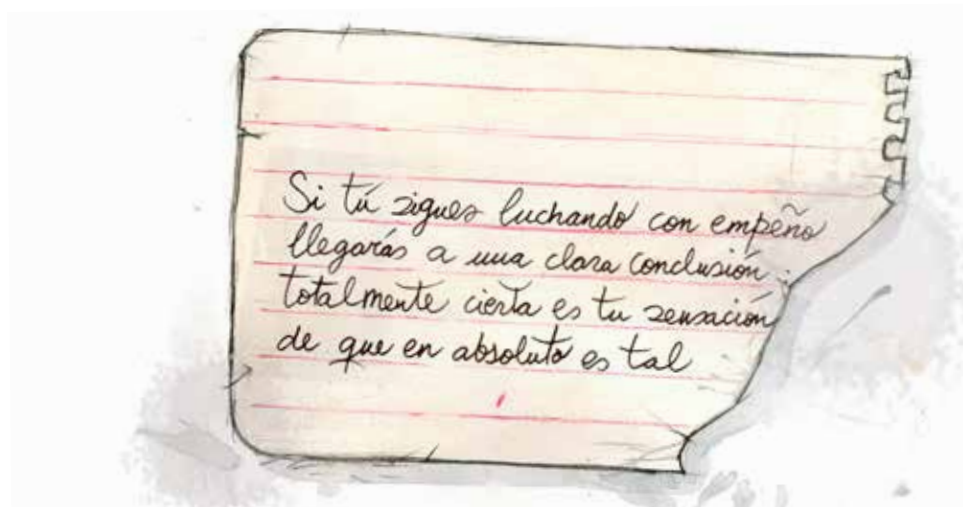 Si tú sigues luchando con empeño
llegarás a una clara conclusión:
totalmente cierta es tu sensación
de que en absoluto es tal